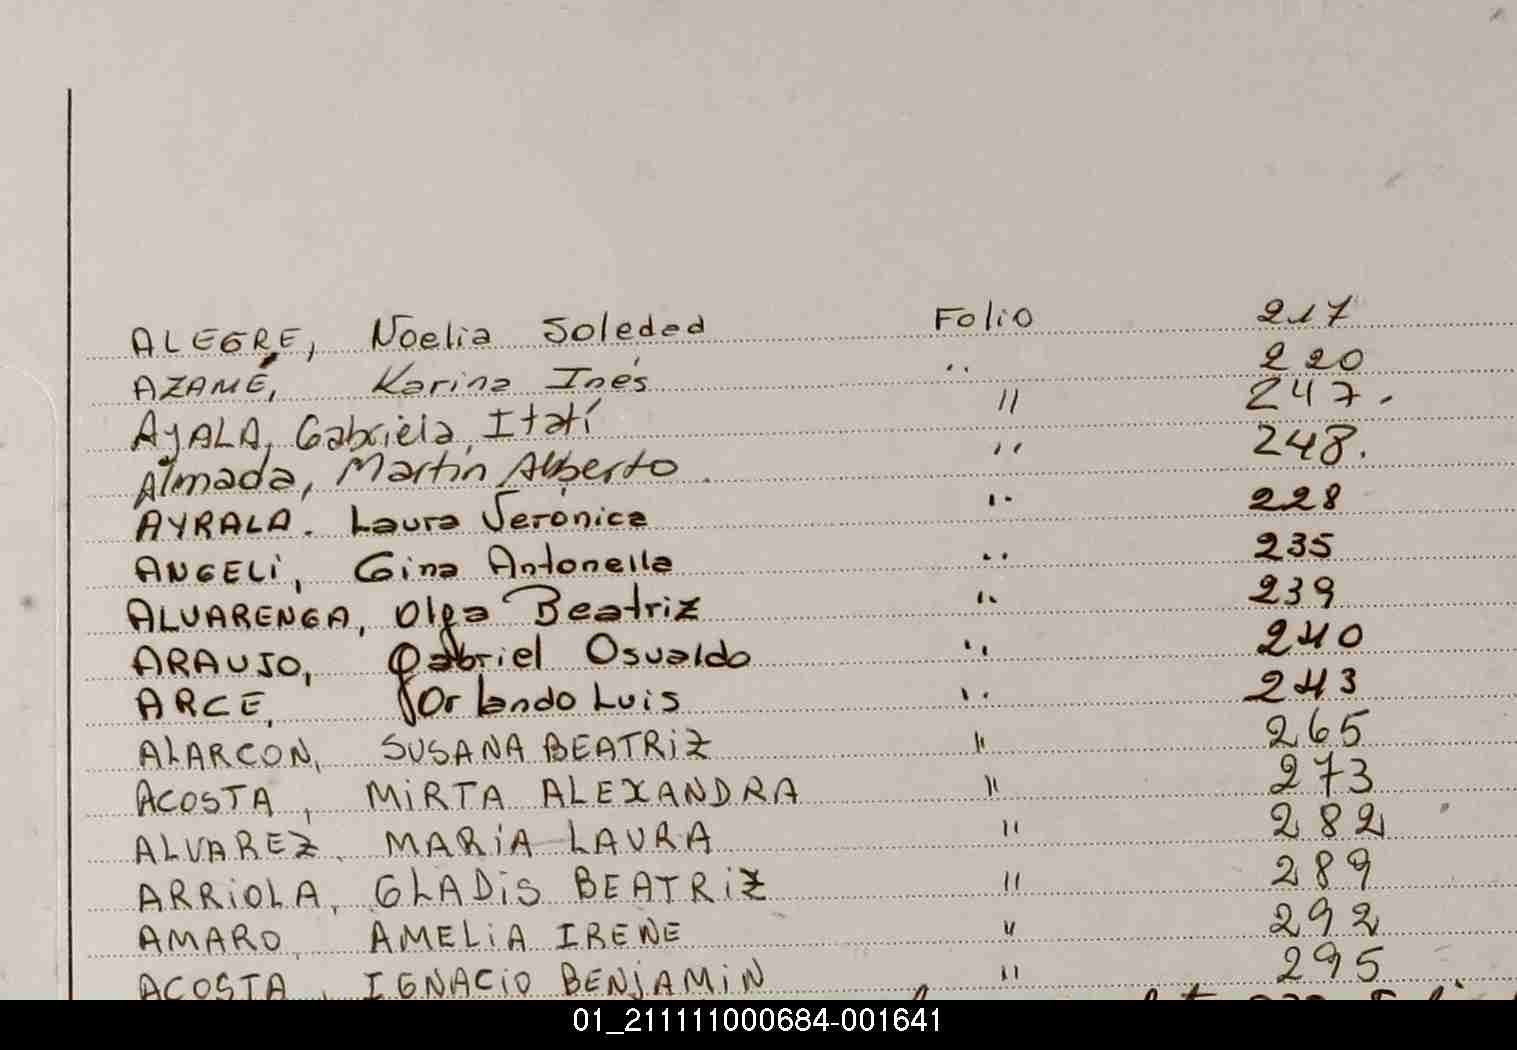 ALEGRE, Noelia Soledad Folio 217
AZAMÉ, Karina Inés " 220
AyALA, Gabriela Itatí " 247.
Almada, Martín Alberto " 248.
AYRALA. Laura Verónica " 228
ANGELI, Gina Antonella " 235
ALVARENGA, Olga Beatriz " 239
ARAUJO, Gabriel Osvaldo " 240
ARCE, Orlando Luis " 243
ALARCON, SUSANA BEATRIZ " 265
ACOSTA, MIRTA ALEXANDRA " 273
ALVAREZ, MARIA LAURA " 282
ARRIOLA, GLADIS BEATRIZ " 289
AMARO, AMELIA IRENE " 292
ACOSTA, IGNACIO BENJAMIN " 295
01_211111000684-001641